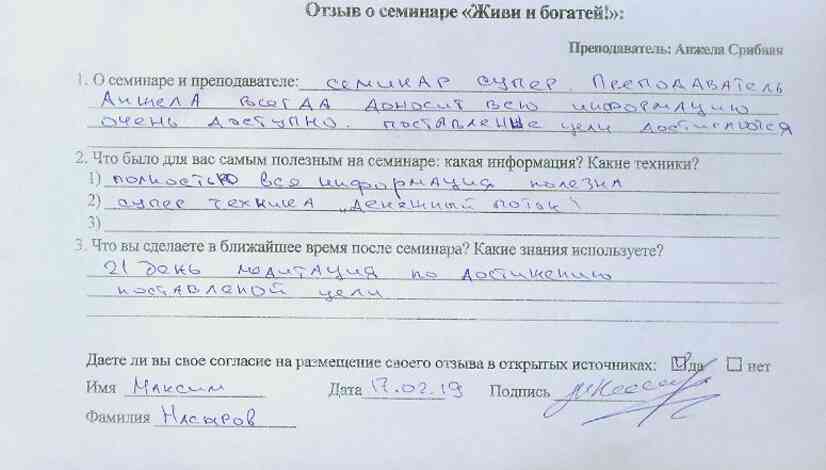 Отзыв о семинаре «Живи и богатей!»:
Преподаватель: Анжела Срибная
1. О семинаре и преподавателе: семинар супер. Преподаватель
Анжела всегда доносит всю информацию
очень доступно. поставленые цели достигаются
2. Что было для вас самым полезным на семинаре: какая информация? Какие техники?
1) полностью вся информация полезна
2) супер техника „денежный поток"
3)
3. Что вы сделаете в ближайшее время после семинара? Какие знания используете?
21 день медитация по достижению
поставленой цели
Даете ли вы свое согласие на размещение своего отзыва в открытых источниках: да нет
Имя Максим Дата 17.02.19 Подпись
Фамилия Насыров